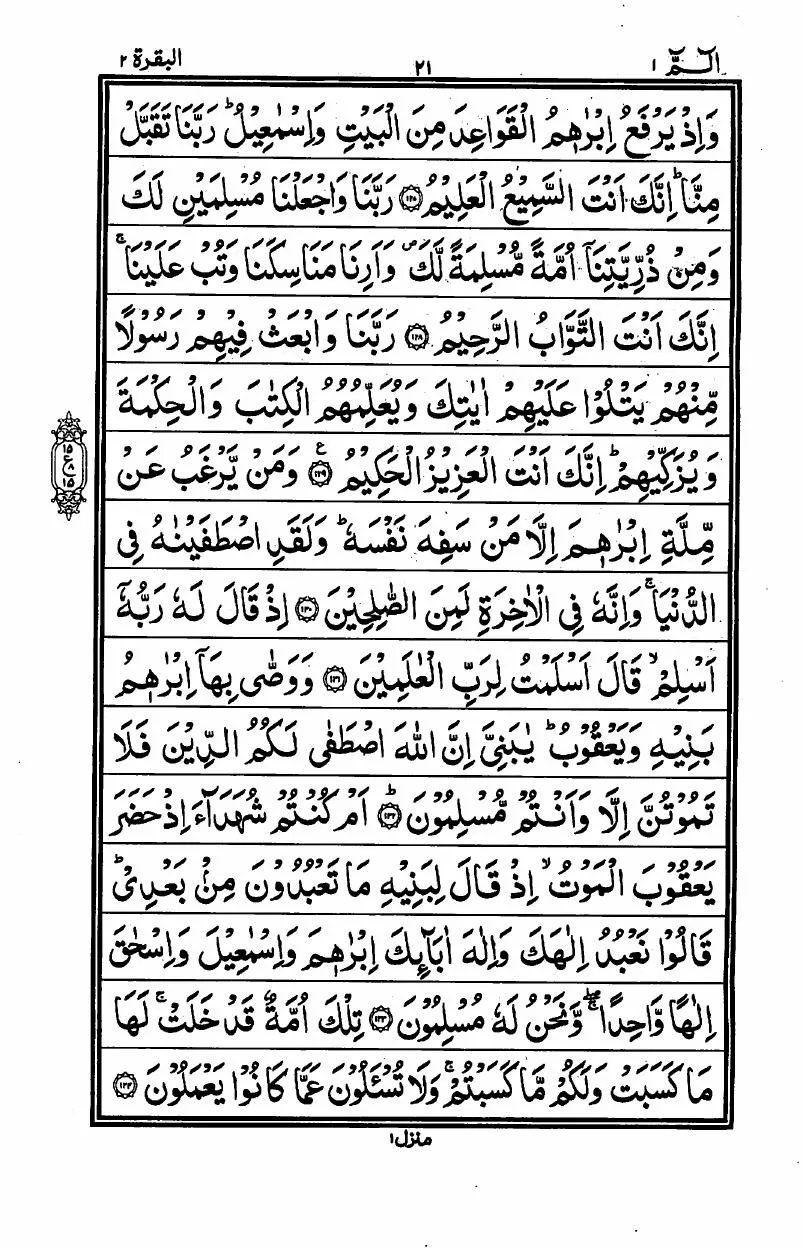 الٓمّٓ ١
٢١
البقرة ٢
وَاِذْ يَرْفَعُ اِبْرٰهٖمُ الْقَوَاعِدَ مِنَ الْبَيْتِ وَاِسْمٰعِيْلُ ؕ رَبَّنَا تَقَبَّلْ
مِنَّا ؕ اِنَّكَ اَنْتَ السَّمِيْعُ الْعَلِيْمُ ۝١٢٧ رَبَّنَا وَاجْعَلْنَا مُسْلِمَيْنِ لَكَ
وَمِنْ ذُرِّيَّتِنَاۤ اُمَّةً مُّسْلِمَةً لَّكَ ۪ وَاَرِنَا مَنَاسِكَنَا وَتُبْ عَلَيْنَا ۚ
اِنَّكَ اَنْتَ التَّوَّابُ الرَّحِيْمُ ۝١٢٨ رَبَّنَا وَابْعَثْ فِيْهِمْ رَسُوْلًا
مِّنْهُمْ يَتْلُوْا عَلَيْهِمْ اٰيٰتِكَ وَيُعَلِّمُهُمُ الْكِتٰبَ وَالْحِكْمَةَ
وَيُزَكِّيْهِمْ ؕ اِنَّكَ اَنْتَ الْعَزِيْزُ الْحَكِيْمُ ۝١٢٩ ع وَمَنْ يَّرْغَبُ عَنْ
١٥
ع ٨
١٥
مِّلَّةِ اِبْرٰهٖمَ اِلَّا مَنْ سَفِهَ نَفْسَهٗ ؕ وَلَقَدِ اصْطَفَيْنٰهُ فِى
الدُّنْيَا ۚ وَاِنَّهٗ فِى الْاٰخِرَةِ لَمِنَ الصّٰلِحِيْنَ ۝١٣٠ اِذْ قَالَ لَهٗ رَبُّهٗۤ
اَسْلِمْ ۙ قَالَ اَسْلَمْتُ لِرَبِّ الْعٰلَمِيْنَ ۝١٣١ وَوَصّٰى بِهَاۤ اِبْرٰهٖمُ
بَنِيْهِ وَيَعْقُوْبُ ؕ يٰبَنِىَّ اِنَّ اللّٰهَ اصْطَفٰى لَكُمُ الدِّيْنَ فَلَا
تَمُوْتُنَّ اِلَّا وَاَنْتُمْ مُّسْلِمُوْنَ ؕ ۝١٣٢ اَمْ كُنْتُمْ شُهَدَآءَ اِذْ حَضَرَ
يَعْقُوْبَ الْمَوْتُ ۙ اِذْ قَالَ لِبَنِيْهِ مَا تَعْبُدُوْنَ مِنْۢ بَعْدِىْ ؕ
قَالُوْا نَعْبُدُ اِلٰهَكَ وَاِلٰهَ اٰبَآئِكَ اِبْرٰهٖمَ وَاِسْمٰعِيْلَ وَاِسْحٰقَ
اِلٰهًا وَّاحِدًا ۖۚ وَّنَحْنُ لَهٗ مُسْلِمُوْنَ ۝١٣٣ تِلْكَ اُمَّةٌ قَدْ خَلَتْ ۚ لَهَا
مَا كَسَبَتْ وَلَكُمْ مَّا كَسَبْتُمْ ۚ وَلَا تُسْئَلُوْنَ عَمَّا كَانُوْا يَعْمَلُوْنَ ۝١٣٤
منزل١